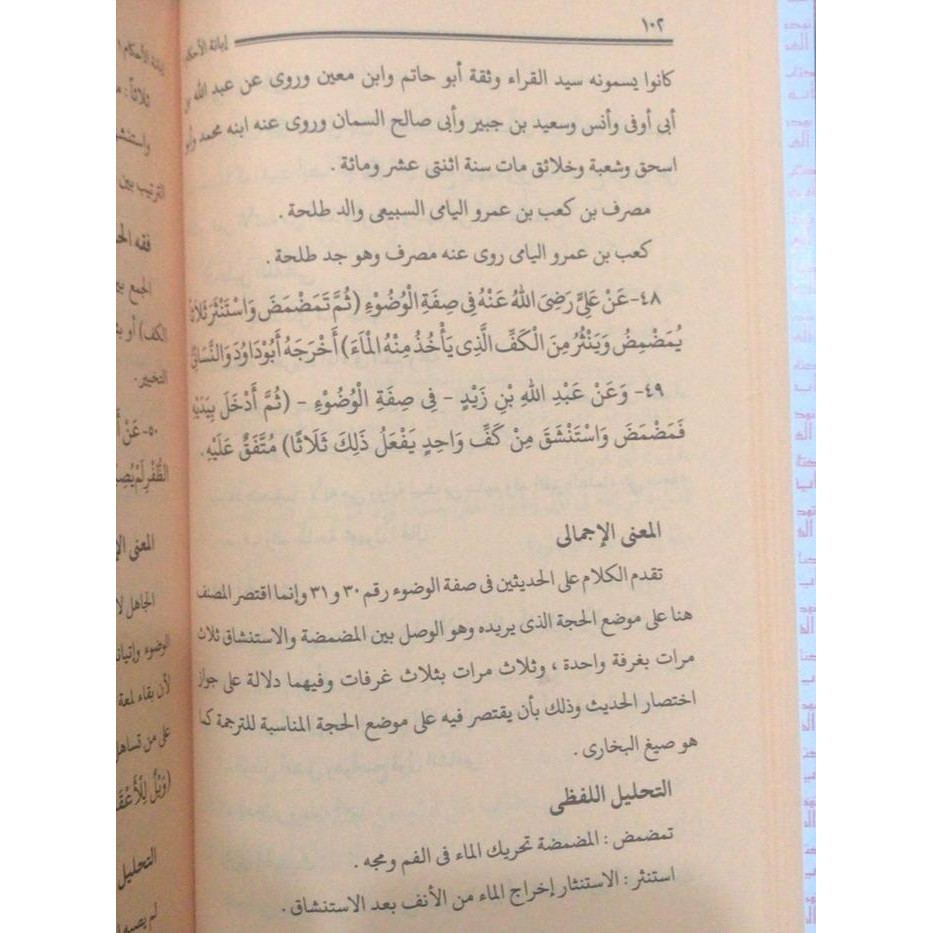 ١٠٢
إبانة الأحكام
كانوا يسمونه سيد القراء وثقة أبو حاتم وابن معين وروى عن عبد الله بن
أبى أوفى وأنس وسعيد بن جبير وأبى صالح السمان وروى عنه ابنه محمد وأبو
اسحق وشعبة وخلائق مات سنة اثنتى عشر ومائة .
مصرف بن كعب بن عمرو اليامى السبيعى والد طلحة .
كعب بن عمرو اليامى روى عنه مصرف وهو جد طلحة .
٤٨- عَنْ عَلِيٍّ رَضِىَ اللهُ عَنْهُ فِى صِفَةِ الْوُضُوْءِ (ثُمَّ تَمَضْمَضَ وَاسْتَنْثَرَ ثَلَاثًا
يُمَضْمِضُ وَيَنْثُرُ مِنَ الْكَفِّ الَّذِى يَأْخُذُ مِنْهُ الْمَاءَ) أَخْرَجَهُ أَبُوْدَاوُدَ وَالنَّسَائِيُّ
٤٩- وَعَنْ عَبْدِ اللهِ بْنِ زَيْدٍ - فِى صِفَةِ الْوُضُوْءِ - (ثُمَّ أَدْخَلَ بِيَدَيْهِ
فَمَضْمَضَ وَاسْتَنْشَقَ مِنْ كَفٍّ وَاحِدٍ يَفْعَلُ ذَلِكَ ثَلَاثًا) مُتَّفَقٌ عَلَيْهِ.
المعنى الإجمالى
تقدم الكلام على الحديثين فى صفة الوضوء رقم ٣٠ و ٣١ وإنما اقتصر المصنف
هنا على موضع الحجة الذى يريده وهو الوصل بين المضمضة والاستنشاق ثلاث
مرات بغرفة واحدة ، وثلاث مرات بثلاث غرفات وفيهما دلالة على جواز
اختصار الحديث وذلك بأن يقتصر فيه على موضع الحجة المناسبة للترجمة كما
هو صيغ البخارى .
التحليل اللفظى
تمضمض : المضمضة تحريك الماء فى الفم ومجه .
استنثر : الاستنثار إخراج الماء من الأنف بعد الاستنشاق .